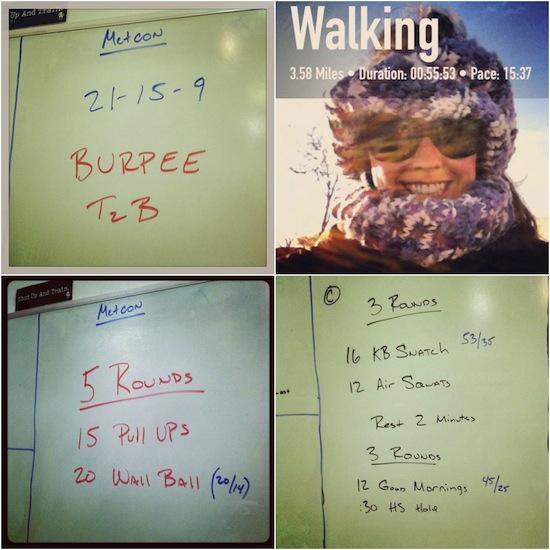 Up And Train.
Metcon
21-15-9
BURPEE
T2B
Walking
3.58 Miles • Duration: 00:55:53 • Pace: 15:37
Shut Up And Train.
Metcon
5 Rounds
15 Pull UPS
20 Wall Ball (20/14)
C
3 Rounds
16 KB Snatch 53/35
12 Air Squats
Rest 2 Minutes
3 Rounds
12 Good Mornings 45/25
:30 HS Hold